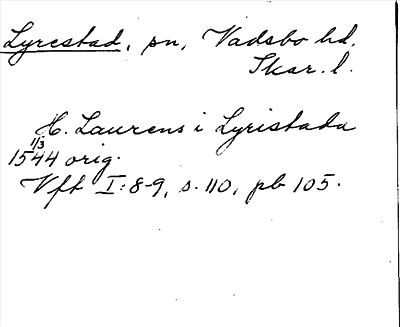 Lyrestad, sn, Vadsbo hd.
Skar. l.
H. Laurens i Lyristada
1/3
1544 orig.
Vft I:8-9, s. 110, pb 105.